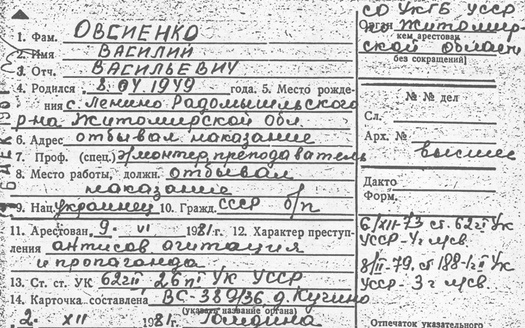 1. Фам. ОВСИЕНКО
2. Имя ВАСИЛИЙ
3. Отч. ВАСИЛЬЕВИЧ
4. Родился 8.04.1949 года. 5. Место рожде-
ния с. Ленино Радомышльского
р-на Житомирской обл.
6. Адрес отбывал наказание
7. Проф. (спец.) э/монтер, преподаватель
8. Место работы, должн. отбывал
наказание
9. Нац. украинец 10. Гражд. СССР б/п
11. Арестован 9. VI 1981 г. 12. Характер преступ-
ления антисов агитация
и пропаганда
13. Ст. ст. УК 62 ч II, 26 УК УССР
14. Карточка составлена ВС-389/36 д. Кучино
(указать название органа)
2. XII 1981 г.
СО УКГБ УССР
Орган Житомир-
кем арестован
ской области
без сокращений)
№ № дел
Сл.
Арх. №
высшее
Дакто
Форм.
6/XII-73 ст. 62 ч II УК
УССР - 4 г
8/II-79. ст 188-1 ч II УК
УССР - 3 г
Отпечаток указательного